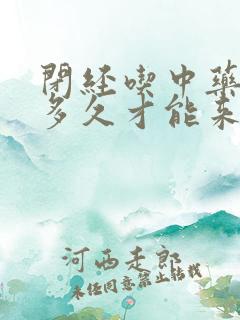 閉経喫中藥
多久才能來
河西走郎
未任同意禁止轉載